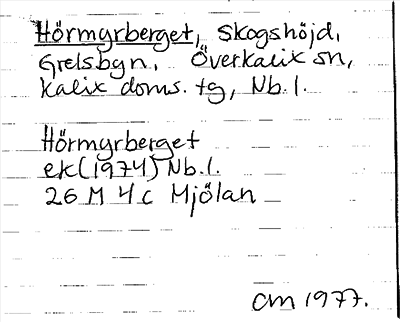 Hörmyrberget, Skogshöjd,
Grelsbyn, Överkalix sn,
Kalix doms. tg, Nb. l.
Hörmyrberget
ek (1974) Nb. l.
26 M 4 c Mjölan
CM 1977.